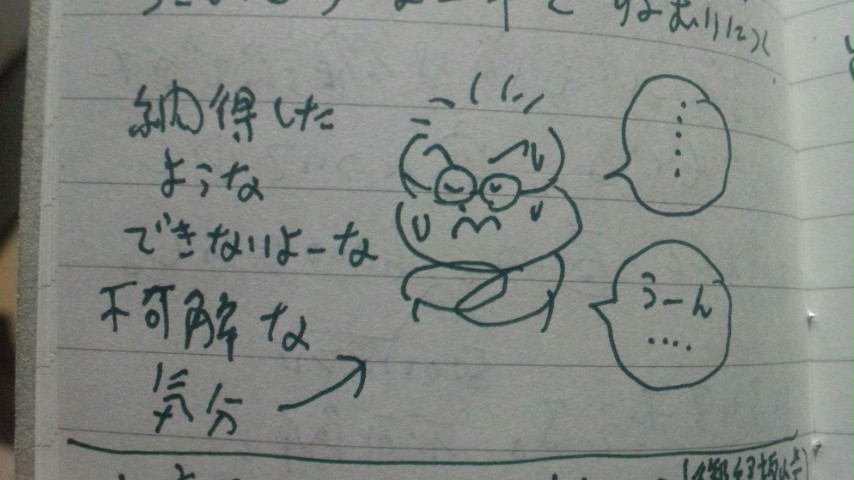 納得した
ような
できないよーな
不可解な
気分
・・・・・
うーん
・・・・